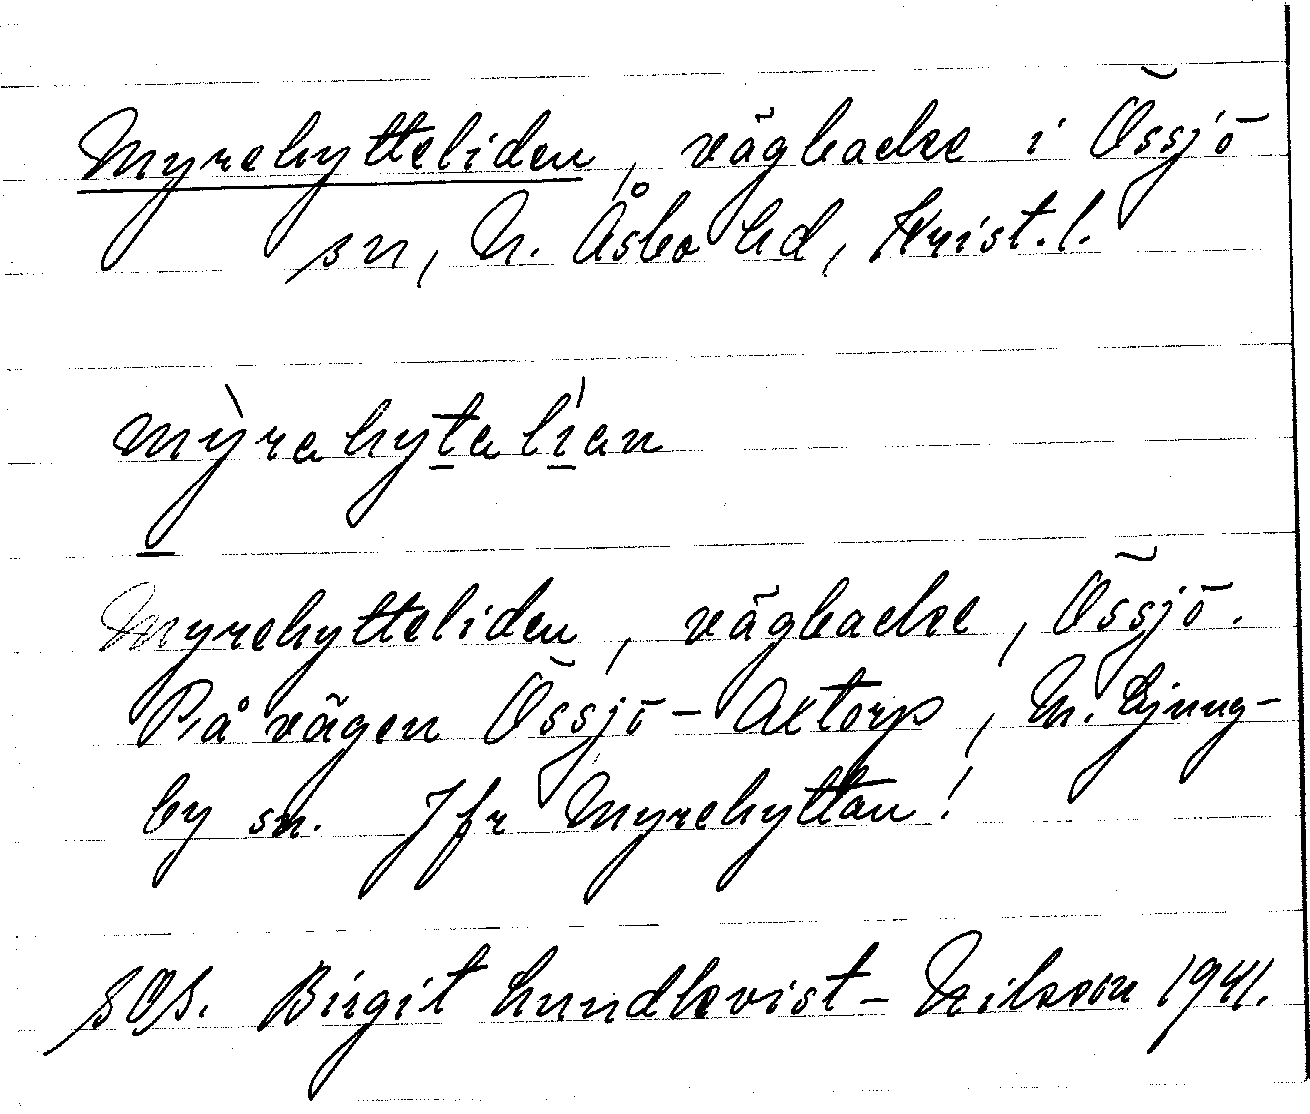 Myrehytteliden, vägbacke i Össjö
sn, N. Åsbo hd, Krist. l.
mỳrahytalían
Myrehytteliden, vägbacke, Össjö.
På vägen Össjö - Axtorp, N. Ljung-
by sn. Jfr Myrehyttan!
SOS. Birgit Lundkvist - Nilsson 1941.